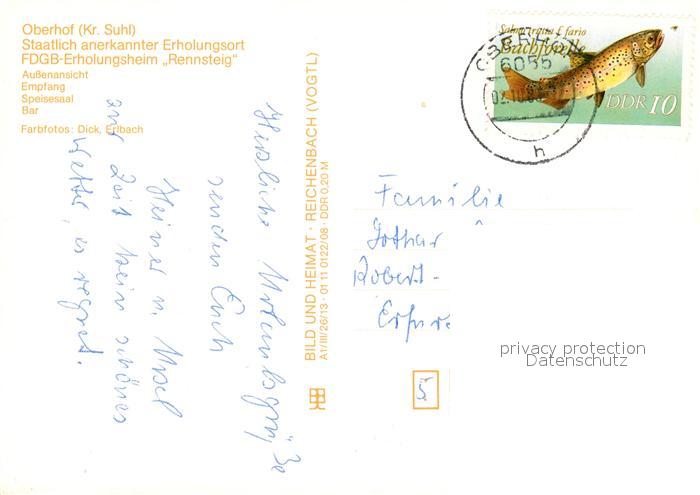 Oberhof (Kr. Suhl)
Staatlich anerkannter Erholungsort
FDGB-Erholungsheim „Rennsteig"
Außenansicht
Empfang
Speisesaal
Bar
Farbfotos: Dick, Erlbach
Herzliche Urlaubsgrüße
senden Euch
Heiner u. Ursel
zur Zeit kein schönes
Wetter, es regnet.
BILD UND HEIMAT · REICHENBACH (VOGTL)
A1/III/26/13 · 01 11 0122/08 · DDR 0,20 M
Salmo trutta f. fario
Bachforelle
DDR 10
6055
h
Familie
Lothar
Robert-
Erfurt
5
privacy protection
Datenschutz